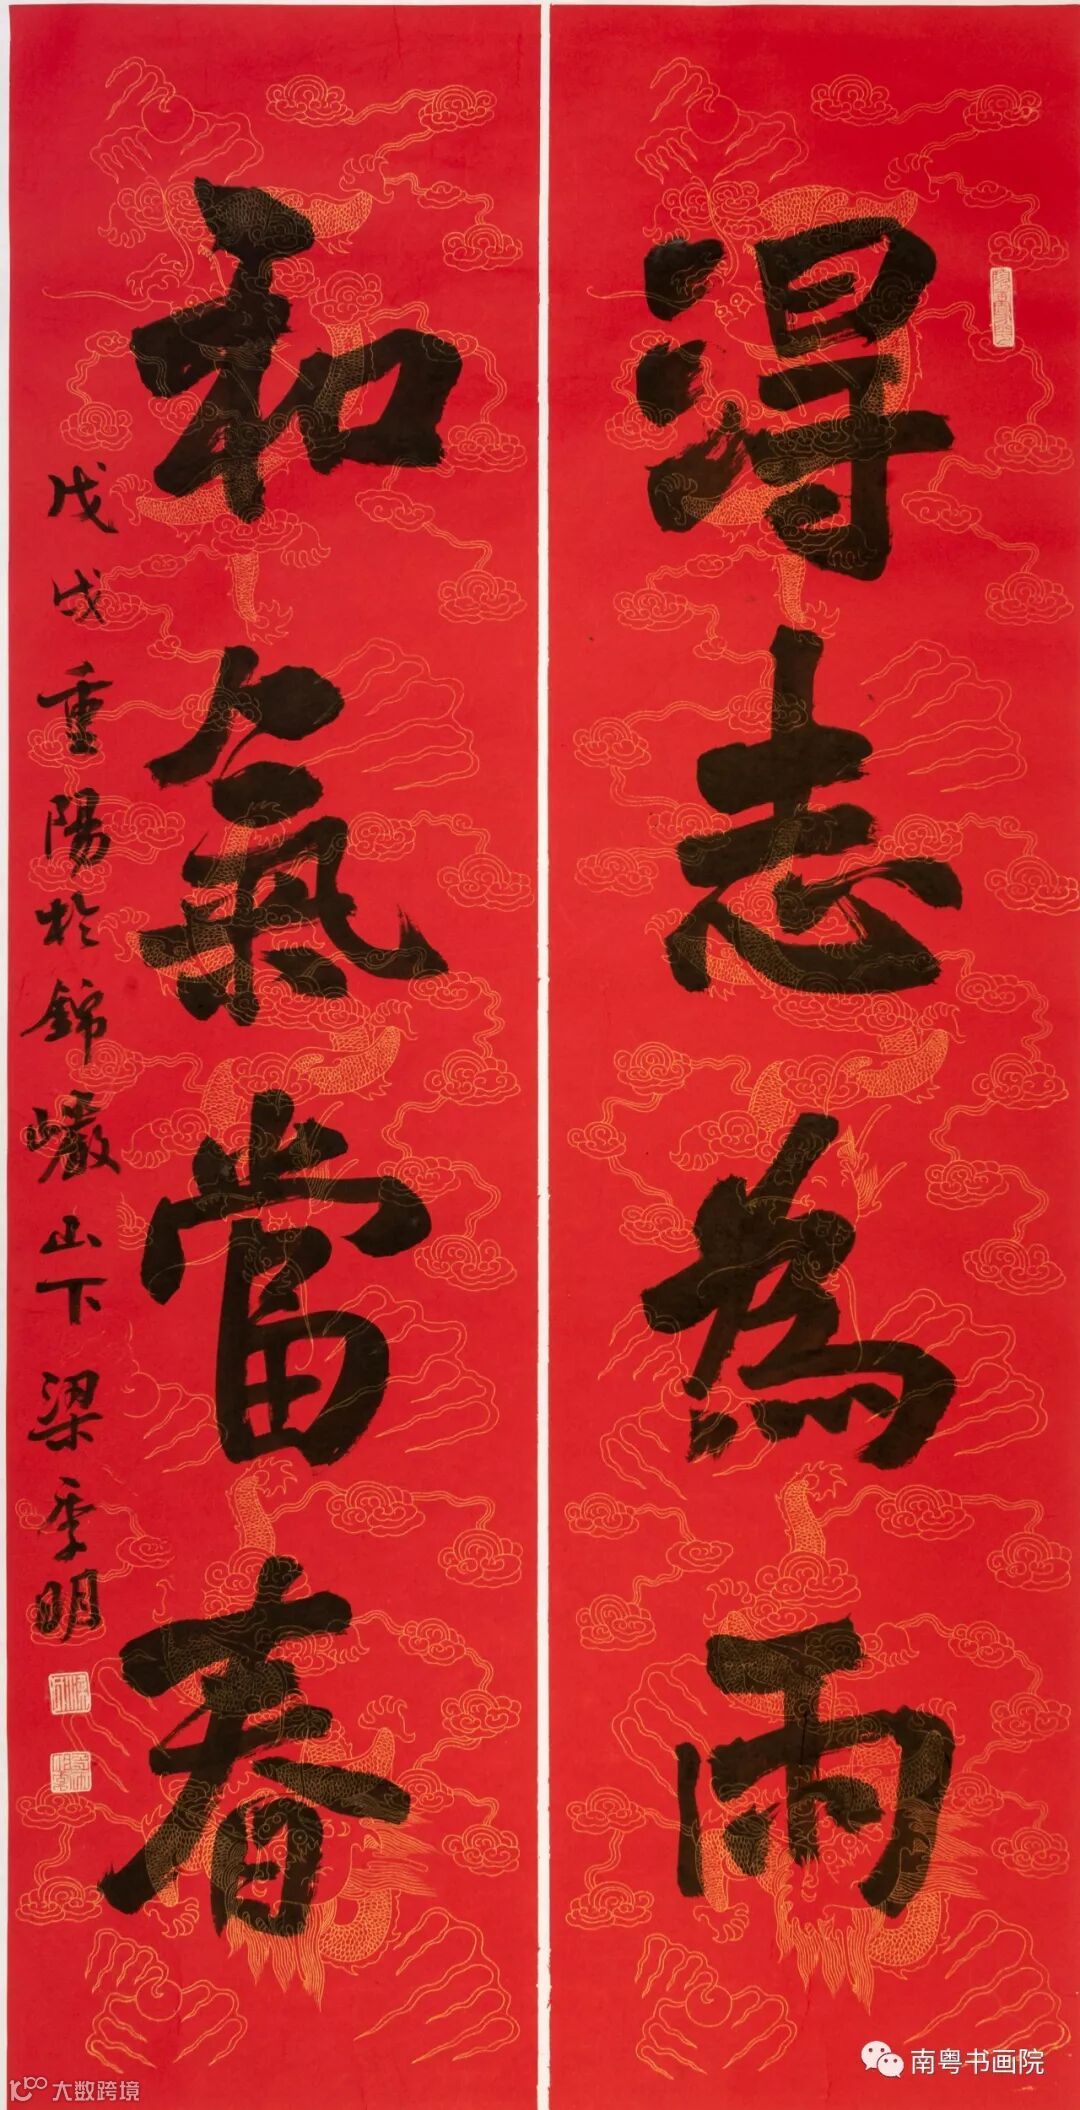 得志為雨
和氣當春
戊戌重陽於錦巖山下梁季明
南粤书画院
大数跨境